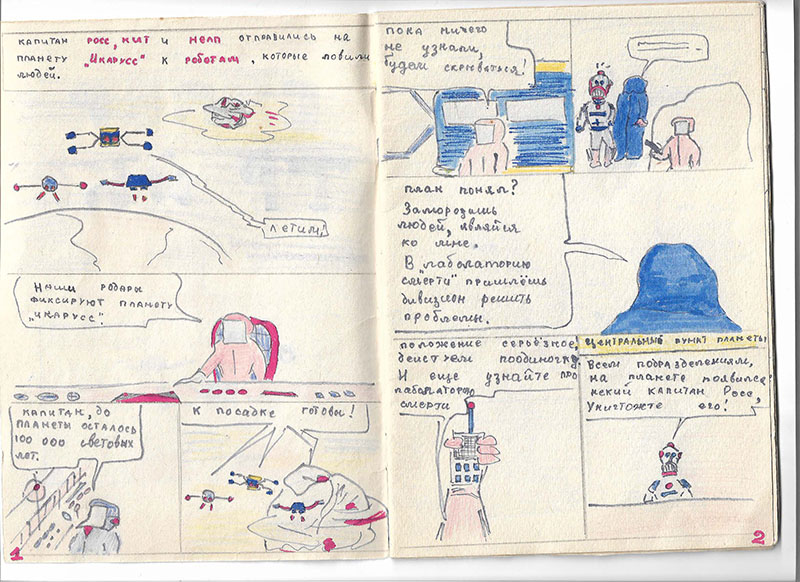 КАПИТАН РОСС, КИТ И НЕЛП ОТПРАВИЛИСЬ НА
ПЛАНЕТУ "ИКАРУСС" К РОБОТАМ, КОТОРЫЕ ЛОВИЛИ
ЛЮДЕЙ.
ЛЕТИМ!
НАШИ РОДАРЫ
ФИКСИРУЮТ ПЛАНЕТУ
"ИКАРУСС".
КАПИТАН, ДО
ПЛАНЕТЫ ОСТАЛОСЬ
100 000 СВЕТОВЫХ
ЛЕТ.
К ПОСАДКЕ ГОТОВЫ!
1
ПОКА НИЧЕГО
НЕ УЗНАЛИ,
БУДЕМ СКРЫВАТЬСЯ!
ПЛАН ПОНЯЛ?
ЗАМОРОЗИШЬ
ЛЮДЕЙ, ЯВЛЯЙСЯ
КО МНЕ.
В "ЛАБОЛАТОРИЮ
СМЕРТИ" ПРИШЛЁШЬ
ДИВИЗИОН РЕШИТЬ
ПРОБЛЕМЫ.
ПОЛОЖЕНИЕ СЕРЬЁЗНОЕ,
ДЕЙСТУЕМ ПООДИНОЧКУ.
И ЕЩЕ УЗНАЙТЕ ПРО
ЛАБОЛАТОРЮ
СМЕРТИ
ЦЕНТРАЛЬНЫЙ ПУНКТ ПЛАНЕТЫ
ВСЕМ ПОДРАЗДЕЛЕНИЯМ,
НА ПЛАНЕТЕ ПОЯВИЛСЯ
НЕКИЙ КАПИТАН РОСС,
УНИЧТОЖТЕ ЕГО!
2